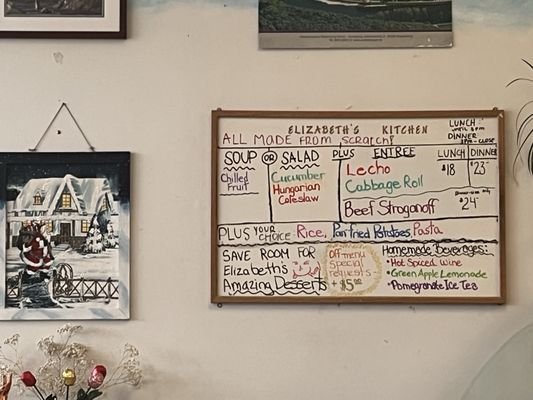 ELIZABETH'S KITCHEN
ALL MADE FROM SCRATCH!
LUNCH:
UNTIL 3PM
DINNER:
3PM - CLOSE
SOUP OR SALAD PLUS ENTREE LUNCH DINNER
Chilled
Fruit
Cucumber
Hungarian
Coleslaw
Lecho
Cabbage Roll
$18 $23
Beef Stroganoff
DINNER ONLY
$24
PLUS YOUR CHOICE Rice, Pan Fried Potatoes, Pasta
SAVE ROOM FOR
Elizabeth's
Amazing Desserts
Off-menu
Special
requests
+ $5.00
Homemade Beverages:
• Hot Spiced Wine
• Green Apple Lemonade
• Pomegranate Ice Tea